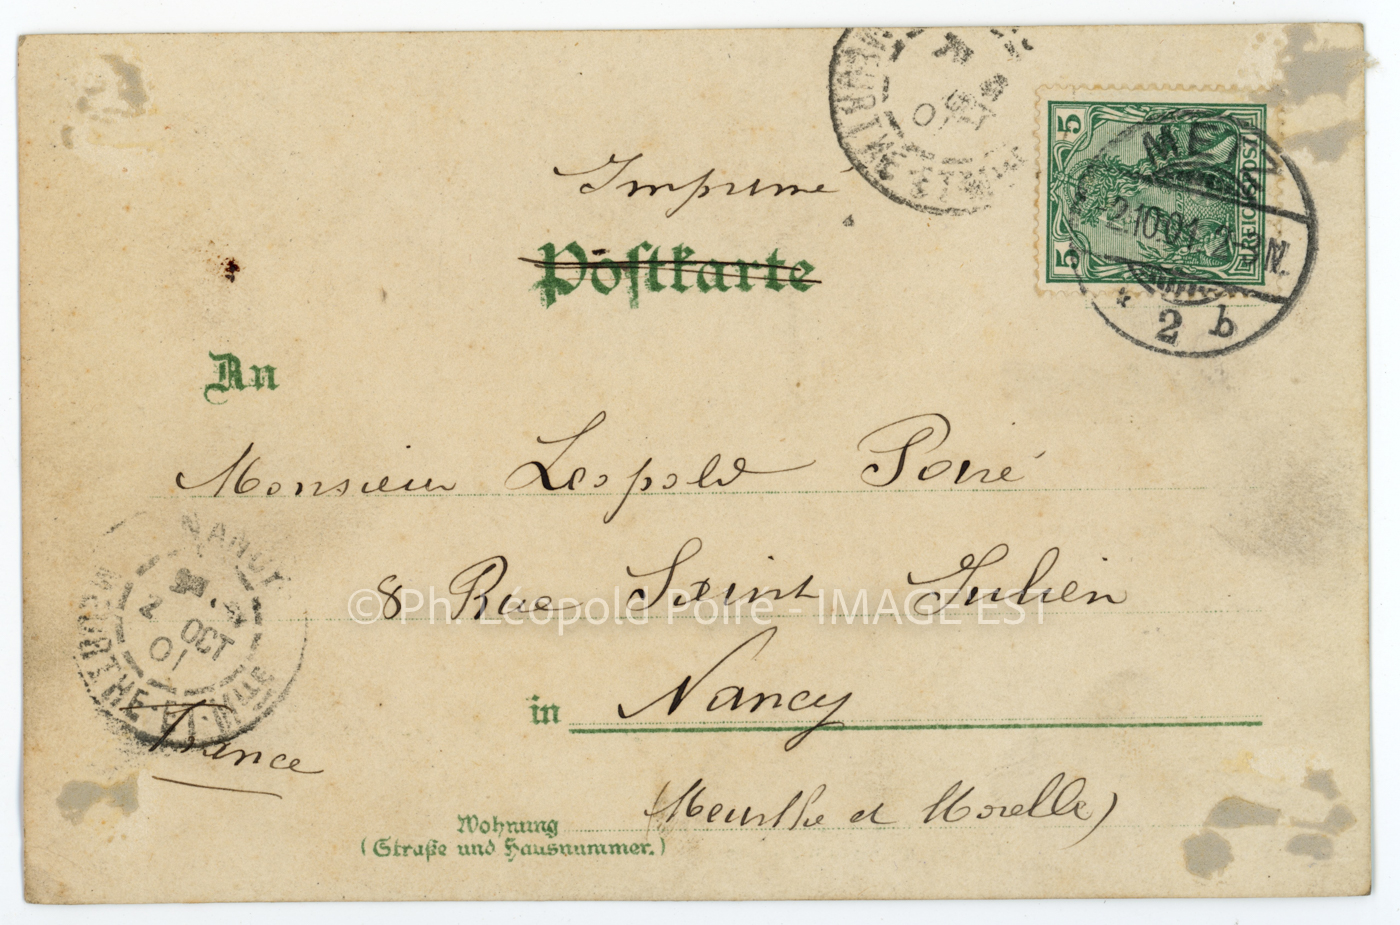 Imprimé
Postkarte
5
5
REICHSPOST
METZ
2.10.01
N.
* 2 b
MEURTHE-ET-MLLE
01
An
Monsieur Leopold Poiré
8 Rue Saint Julien
in Nancy
France
(Meurthe et Moselle)
NANCY
2 OCT
01
MEURTHE-ET-MLLE
Wohnung
(Straße und Hausnummer.)
© Ph. Léopold Poiré - IMAGE'EST